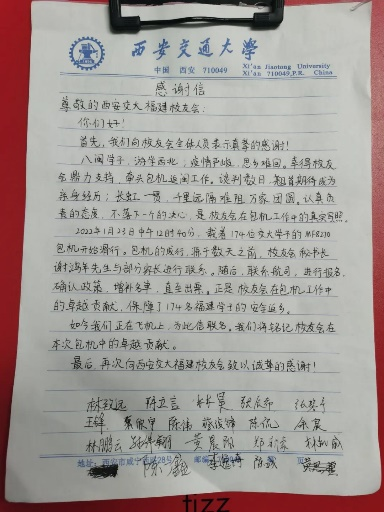 西安交通大学
中国 西安 710049
Xi'an Jiaotong University
Xi'an 710049, P.R. China
感谢信
尊敬的西安交大福建校友会：
你们好！
首先，我们向校友会全体人员表示真挚的感谢！
八闽学子，游学西北，疫情严峻，思乡难回。幸得校友
会鼎力支持，牵头包机返闽工作。谈判数日，翘首期待成为
亲身经历；长虹一贯，千里远隔难阻万家团圆。认真负
责的态度，不落下一个的决心，是校友会在包机工作中的真实写照。
2022年1月23日中午12时40分，载着174位交大学子的MF8270
包机开始滑行。包机的成行，源于数天之前，校友会秘书长
谢鸿年先生与部分家长进行联系。随后，联系航司，进行报备，
确认政策，增补名单，直至出票。正是校友会在包机工作中
的卓越贡献，保障了174名福建学子的安全返乡。
如今我们正在飞机上，为此信联名。我们将铭记校友会在
本次包机中的卓越贡献。
最后，再次向西安交大福建校友会致以诚挚的感谢！
陈立言
王锋 陈伟
林鹏云
地址：西安市咸宁西路28号 邮编 页
tizz